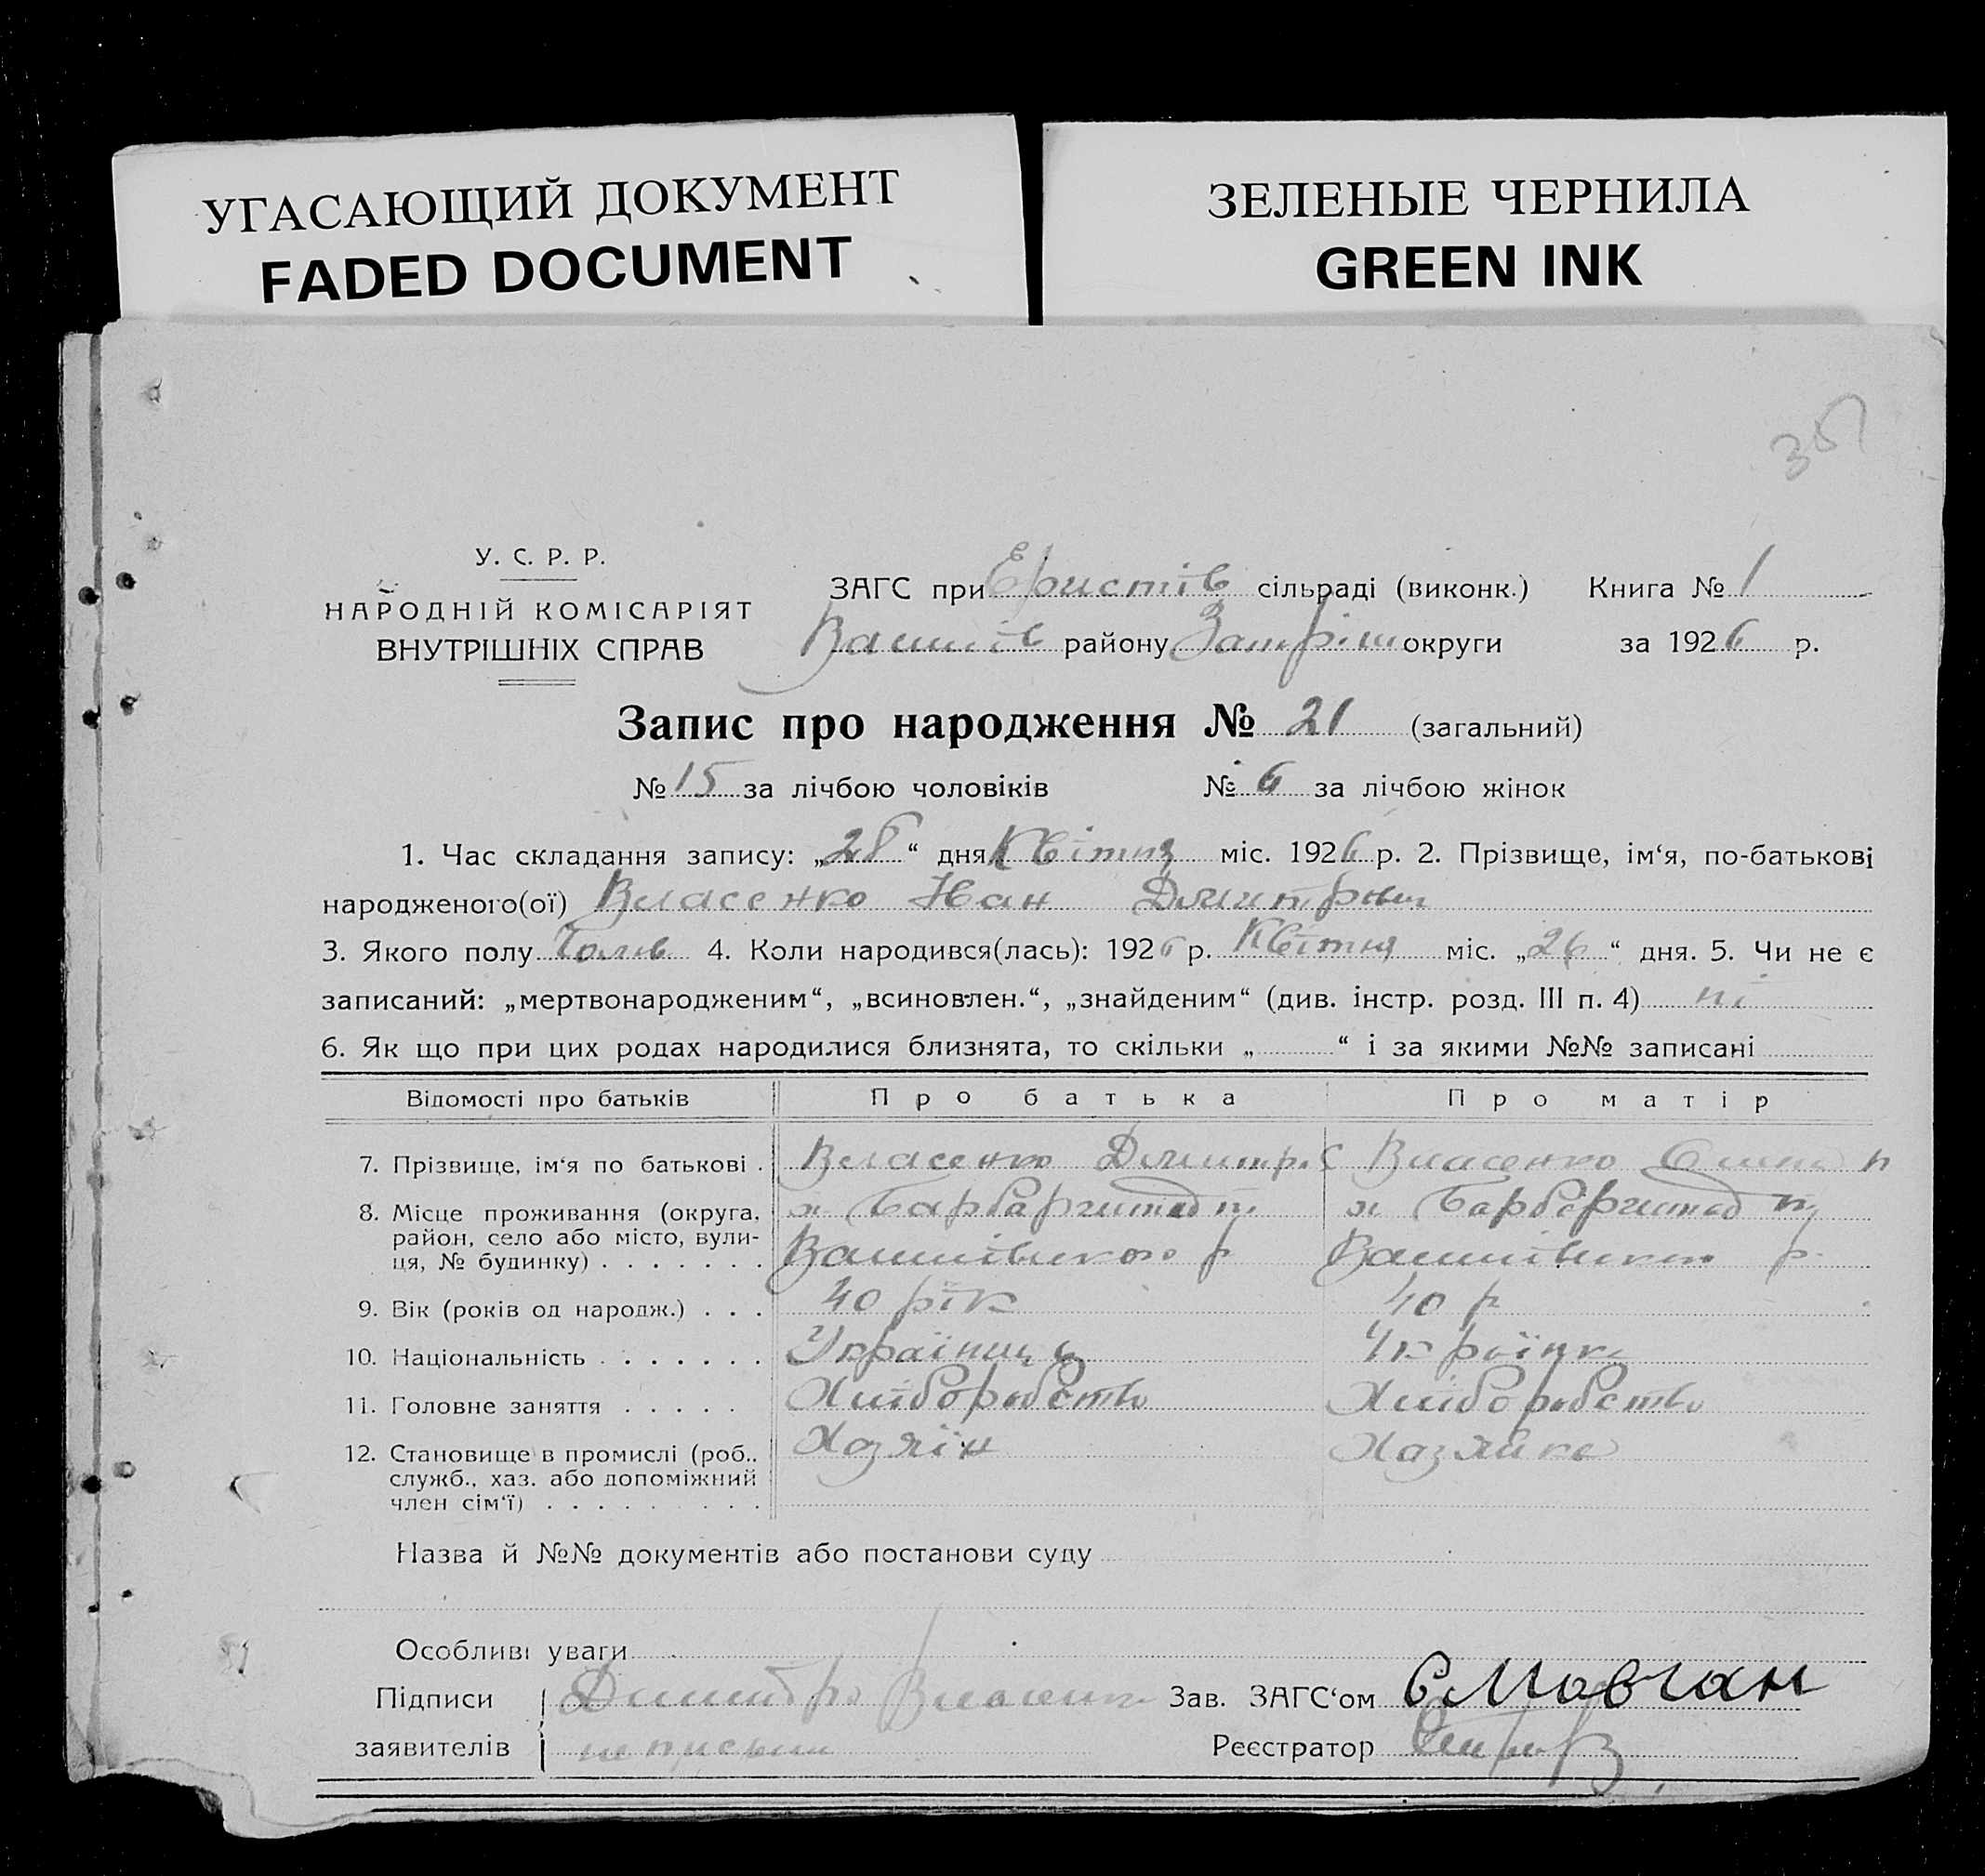 УГАСАЮЩИЙ ДОКУМЕНТ
FADED DOCUMENT
ЗЕЛЕНЫЕ ЧЕРНИЛА
GREEN INK
У. С. Р. Р.
НАРОДНІЙ КОМІСАРІЯТ
ВНУТРІШНІХ СПРАВ
ЗАГС при Еристів сільраді (виконк.) Книга № 1
району округи за 1926 р.
Запис про народження № 21 (загальний)
№ 15 за лічбою чоловіків № 6 за лічбою жінок
1. Час складання запису: „28“ дня Квітня міс. 1926 р. 2. Прізвище, ім‘я, по-батькові
народженого(ої) Власенко Іван
3. Якого полу Чолов 4. Коли народився(лась): 1926 р. Квітня міс. „26“ дня. 5. Чи не є
записаний: „мертвонародженим“, „всиновлен.“, „знайденим“ (див. інстр. розд. III п. 4) ні
6. Як що при цих родах народилися близнята, то скільки „ “ і за якими №№ записані
Відомості про батьків Про батька Про матір
7. Прізвище, ім‘я по батькові . Власенко Дмитр. С Власенко
8. Місце проживання (округа,
район, село або місто, вули-
ця, № будинку) . . . . . . .
9. Вік (років од народж.) . . . 40 рік 40 р
10. Національність . . . . . . . Українець Українка
11. Головне заняття . . . . . Хліборобство Хліборобство
12. Становище в промислі (роб.. Хазяїн Хазяйка
служб., хаз. або допоміжний
член сім‘ї) . . . . . . . . .
Назва й №№ документів або постанови суду
Особливі уваги
Підписи Дмитро Власенко Зав. ЗАГС‘ом Є Мовчан
заявителів Реєстратор